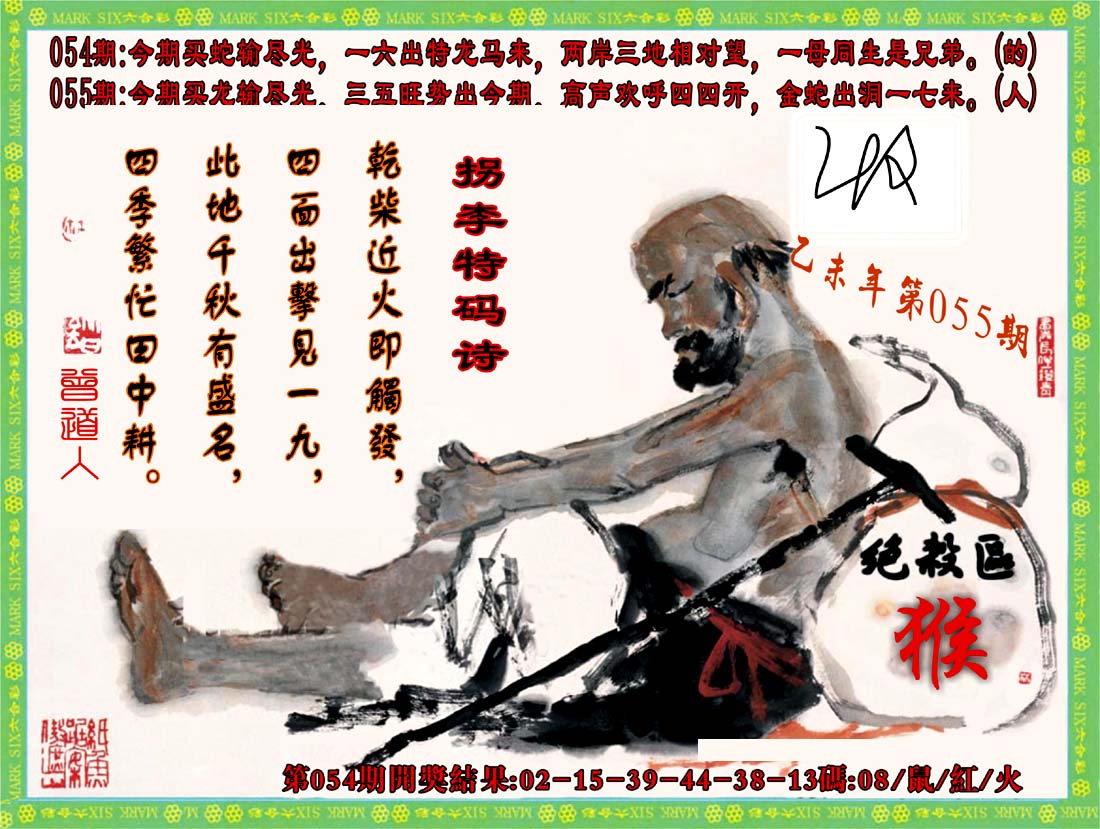 MARK SIX六合彩 MARK SIX六合彩 MARK SIX六合彩 MARK SIX六合彩 MARK SIX六合彩 MARK SIX六合彩 MARK SIX六合彩
054期:今期买蛇输尽光，一六出特龙马来，两岸三地相对望，一母同生是兄弟。(的)
055期:今期买龙输尽光，三五旺势出今期，高声欢呼四四开，金蛇出洞一七来。(人)
拐李特码诗
乾柴近火即觸發，
四面出擊見一九，
此地千秋有盛名，
四季繁忙田中耕。
乙未年第055期
曾道人
绝殺區
猴
第054期開獎結果:02-15-39-44-38-13碼:08/鼠/紅/火